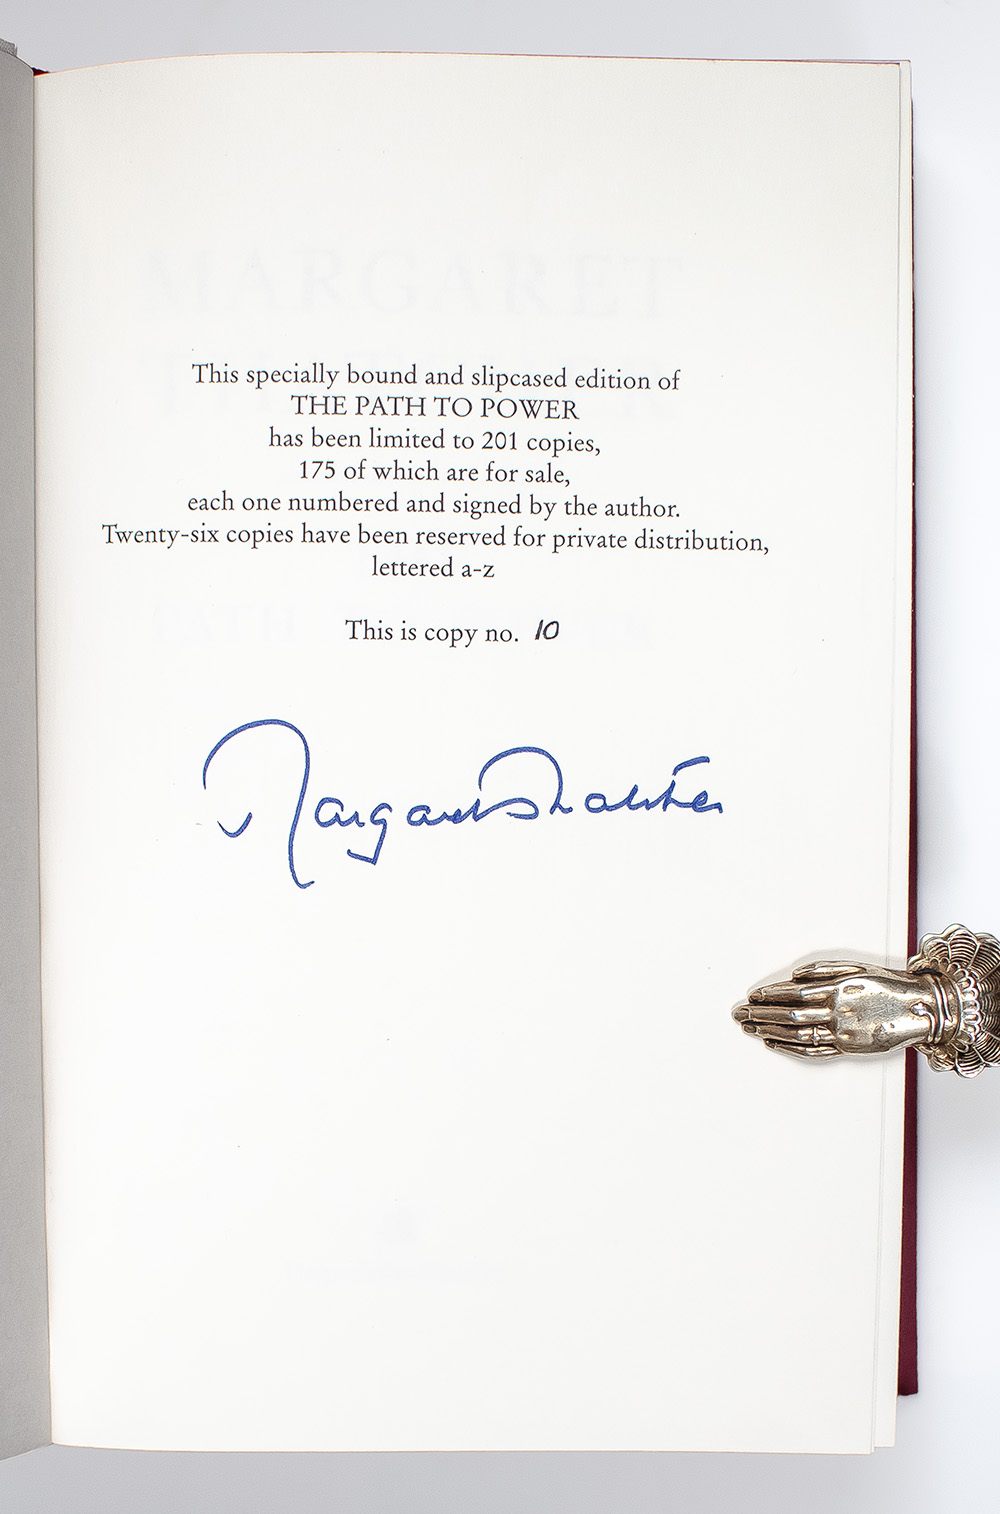 MARGARET
This specially bound and slipcased edition of
THE PATH TO POWER
has been limited to 201 copies,
175 of which are for sale,
each one numbered and signed by the author.
Twenty-six copies have been reserved for private distribution,
lettered a-z
This is copy no. 10
Margaret Thatcher